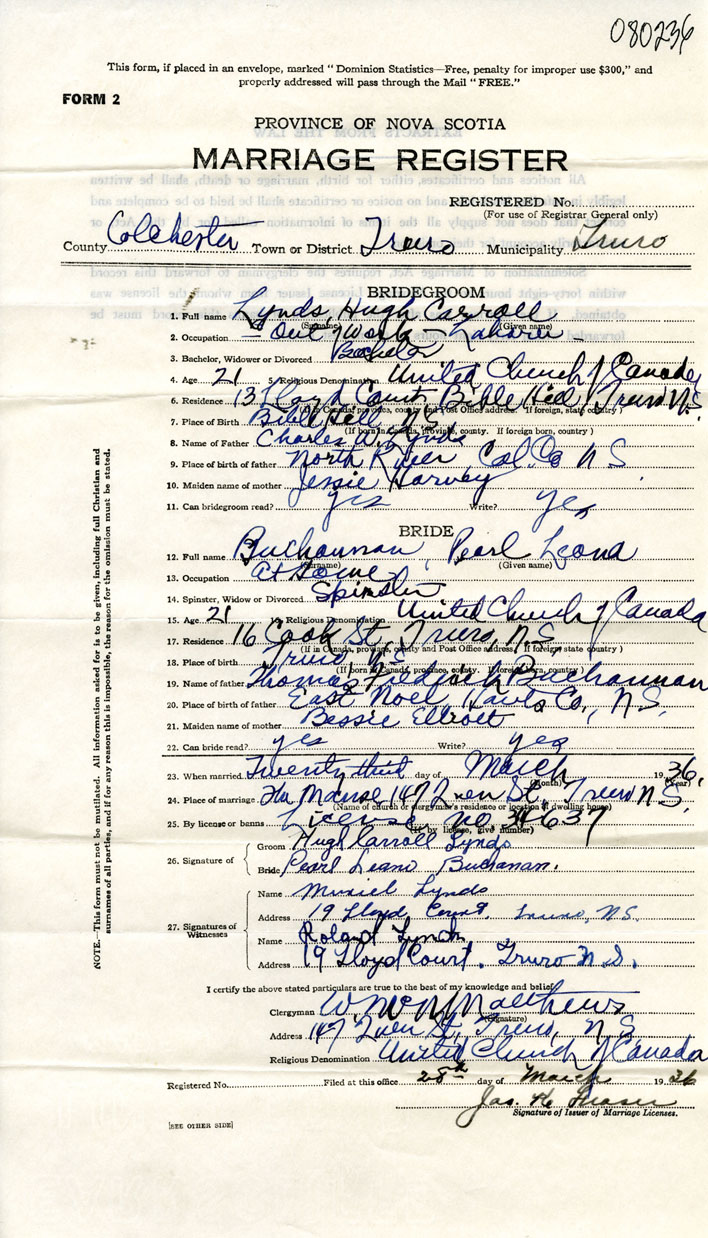 080236
This form, if placed in an envelope, marked "Dominion Statistics—Free, penalty for improper use $300," and
properly addressed will pass through the Mail "FREE."
FORM 2
PROVINCE OF NOVA SCOTIA
MARRIAGE REGISTER
REGISTERED No.
(For use of Registrar General only)
County Colchester Town or District Truro Municipality Truro
BRIDEGROOM
1. Full name Lynds, Hugh Carroll
(Surname) (Given name)
2. Occupation Out of Work - Laborer -
3. Bachelor, Widower or Divorced Bachelor
4. Age 21 5. Religious Denomination United Church of Canada
6. Residence 13 Lloyd Court, Bible Hill, Truro N.S.
(If in Canada, province, county and Post Office address. If foreign, state country)
7. Place of Birth Bible Hill, N.S.
(If born in Canada, province, county. If foreign born, country)
8. Name of Father Charles W. Lynds
9. Place of birth of father North River, Col. Co. N S
10. Maiden name of mother Jessie Harvey
11. Can bridegroom read? yes Write? yes
BRIDE
12. Full name Buchannan, Pearl Leona
(Surname) (Given name)
13. Occupation At Home
14. Spinster, Widow or Divorced Spinster
15. Age 21 16. Religious Denomination United Church of Canada
17. Residence 16 Cook St, Truro, N.S
(If in Canada, province, county and Post Office address. If foreign state country)
18. Place of birth Truro, N.S
(If born in Canada, province, county. If foreign born, country)
19. Name of father Thomas Buchannan
20. Place of birth of father East Noel, Hants Co., N.S.
21. Maiden name of mother Bessie Elliott
22. Can bride read? yes Write? yes
23. When married Twenty third day of March 1936.
(Month) (Year)
24. Place of marriage The Manse, 147 Queen St., Truro N S.
(Name of church or clergyman's residence or location if dwelling house)
25. By license or banns License, no.
(If by license, give number)
26. Signature of
Groom Hugh Carroll Lynds
Bride Pearl Leano Buchanan.
27. Signatures of
Witnesses
Name Muriel Lynds
Address 19 Lloyd Court, Truro, N.S.
Name Roland Lynds
Address 19 Lloyd Court. Truro N.S.
I certify the above stated particulars are true to the best of my knowledge and belief.
Clergyman Matthews
(Signature)
Address 147 Queen St, Truro, N S
Religious Denomination United Church of Canada
Registered No. Filed at this office 28th day of March 1936
Jas. Fraser
Signature of Issuer of Marriage Licenses.
[SEE OTHER SIDE]
NOTE.—This form must not be mutilated. All information asked for is to be given, including full Christian and
surnames of all parties, and if for any reason this is impossible, the reason for the omission must be stated.